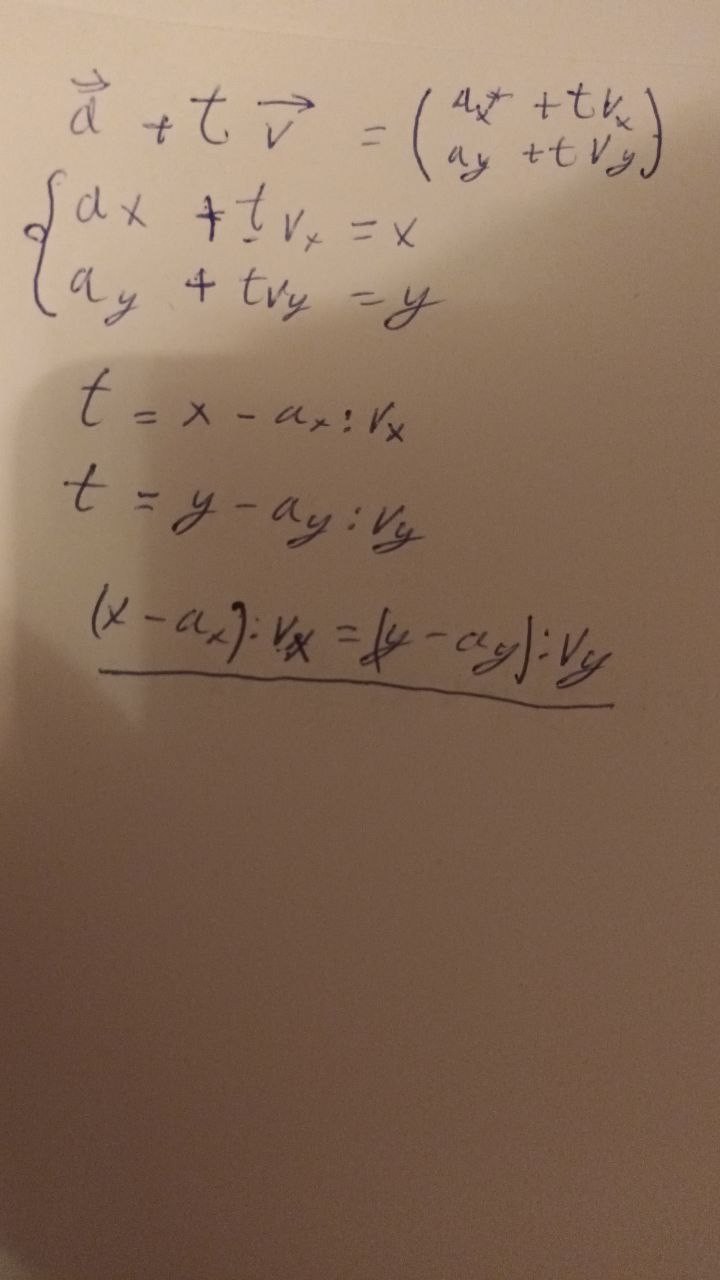 a⃗ + t v⃗ = (aₓ + t vₓ
a_y + t v_y)
{ aₓ + t vₓ = x
a_y + t v_y = y
t = x - aₓ : vₓ
t = y - a_y : v_y
(x - aₓ) : vₓ = (y - a_y) : v_y